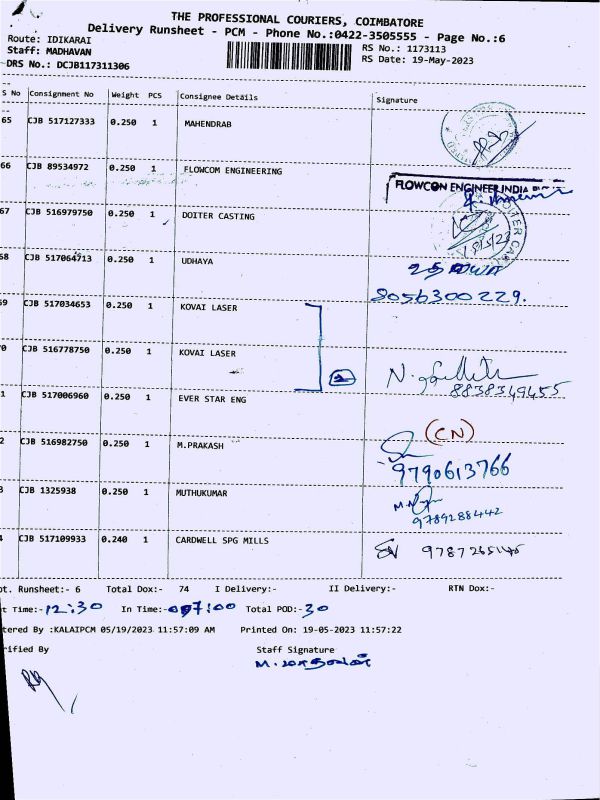 THE PROFESSIONAL COURIERS, COIMBATORE
Delivery Runsheet - PCM - Phone No.:0422-3505555 - Page No.:6
Route: IDIKARAI RS No.: 1173113
Staff: MADHAVAN RS Date: 19-May-2023
DRS No.: DCJB117311306
S No Consignment No Weight PCS Consignee Details Signature
65 CJB 517127333 0.250 1 MAHENDRAB
66 CJB 89534972 0.250 1 FLOWCOM ENGINEERING
FLOWCON ENGINEER INDIA
67 CJB 516979750 0.250 1 DOITER CASTING
68 CJB 517064713 0.250 1 UDHAYA
8056300229.
69 CJB 517034653 0.250 1 KOVAI LASER
0 CJB 516778750 0.250 1 KOVAI LASER
8838349455
1 CJB 517006960 0.250 1 EVER STAR ENG
(CN)
2 CJB 516982750 0.250 1 M.PRAKASH
9790613766
3 CJB 1325938 0.250 1 MUTHUKUMAR
9789288442
4 CJB 517109933 0.240 1 CARDWELL SPG MILLS
ot. Runsheet:- 6 Total Dox:- 74 I Delivery:- II Delivery:- RTN Dox:-
t Time:-12:30 In Time:-07:00 Total POD:-30
tered By :KALAIPCM 05/19/2023 11:57:09 AM Printed On: 19-05-2023 11:57:22
rified By Staff Signature
M. மாதவன்